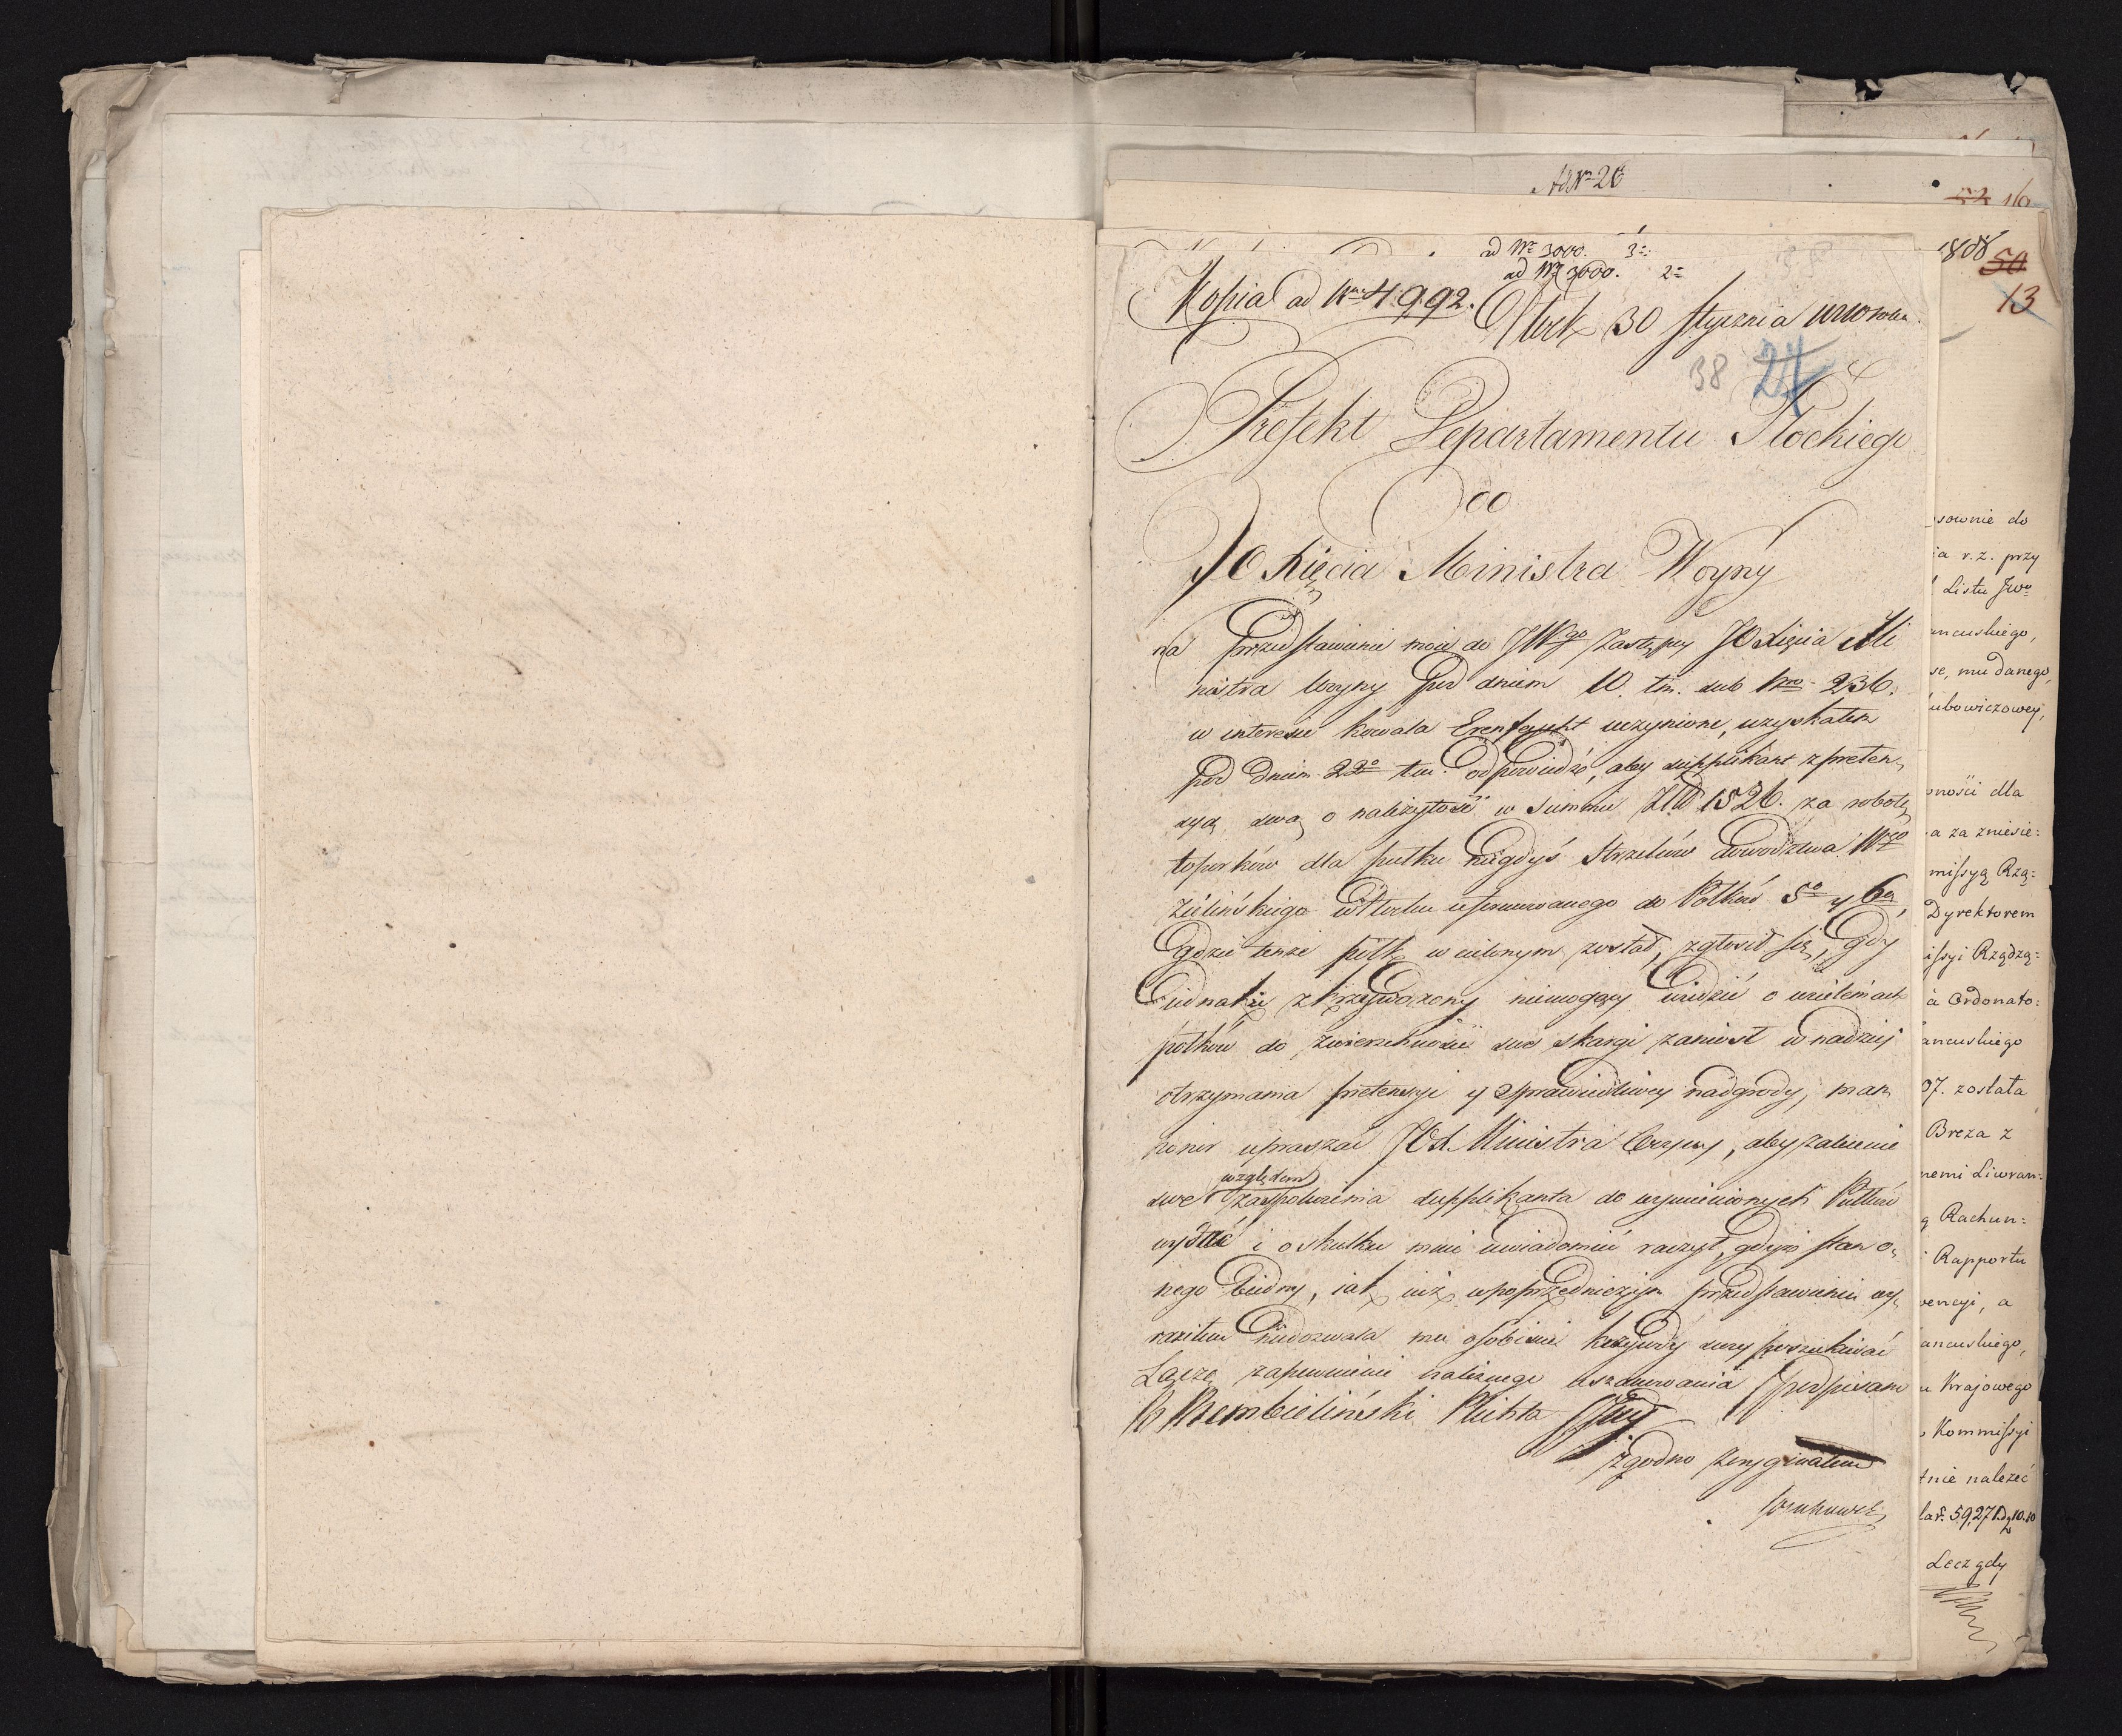 Ad Nro 26
ad Nro 3000. 3o
ad Nro 3000. 2o
Kopia ad Nrum 4992.
Płock 30 stycznia 1810 roku.
38 27
Prefekt Departamentu Płockiego
Do
JO Xięcia Ministra Woyny
na Przedstawienie moie do JWgo Zastępcy JO Xięcia Mi
nistra Woyny pod dniem 10. tm. sub Nro 236.
w interesie kowala Erenfaycht uczynione, uzyskałem
pod dniem 22o tm. odpowiedź, aby supplikant z preten„
syą swą o należytość w Summie Złt 1526. za robotę
toporków dla pułku niegdyś Strzelców dowodztwa Wgo
Zielińskiego w Płocku uformowanego do Półków 5o y 6o,
gdzie tenże półk wcielonym został, zgłosił się, Gdy
iednakże zkrzywdzony niemogący wiedzieć o wcieleniach
półków do zwierzchności swe skargi zaniósł w nadziei
otrzymania pretensyi y sprawiedliwey nadgrody, mam
honor upraszać JOX. Ministra Woyny, aby zalecenie
względem
swe zaspokoienia supplikanta do wymienionych Pułków
wydać i o skutku mnie uwiadomić raczył, gdyż stan o„
nego biedny, iak iuż w poprzedniczym przedstawieniu wy„
raziłem niedozwala mu osobiście krzywdy swey poszukiwać
Łączę zapewnienie należnego uszanowania /podpisano/
R Rembieliński Plichta Sgny
Zgodno z oryginałem
1808
52 16
50
13
sownie do
ia r. z. przy
Listu JWo
ancuskiego,
se, mu danego,
ubowiczowey,
oności dla
a za zniesie:
missyą Rzą:
Dyrektorem
issyi Rządzą:
à Ordonato:
ancuskiego
07. została
Breza z
nemi Liwran:
ą Rachun:
Rapportu
wencyi, a
ancuskiego,
u Krajowego
Kommissyi
tnie należeć
Lecz gdy